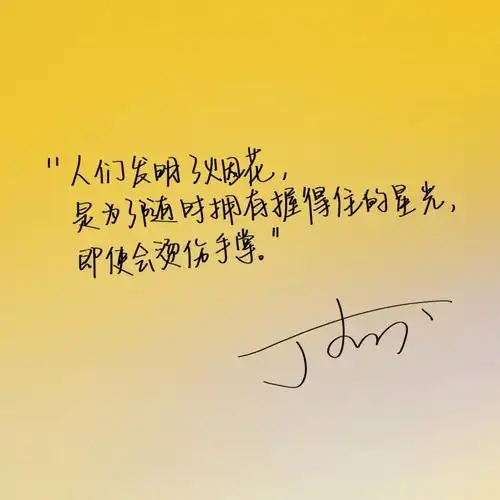 "人们发明了烟花，
是为了随时拥有握得住的星光，
即使会烫伤手掌。"